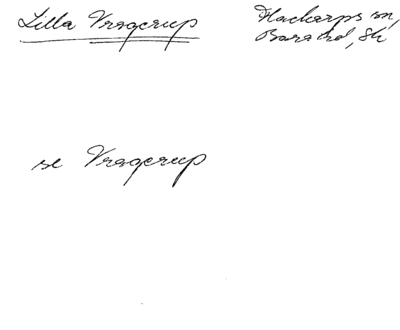 Lilla Vragerup
Flackarps sn,
Bara hd, Sk
se Vragerup